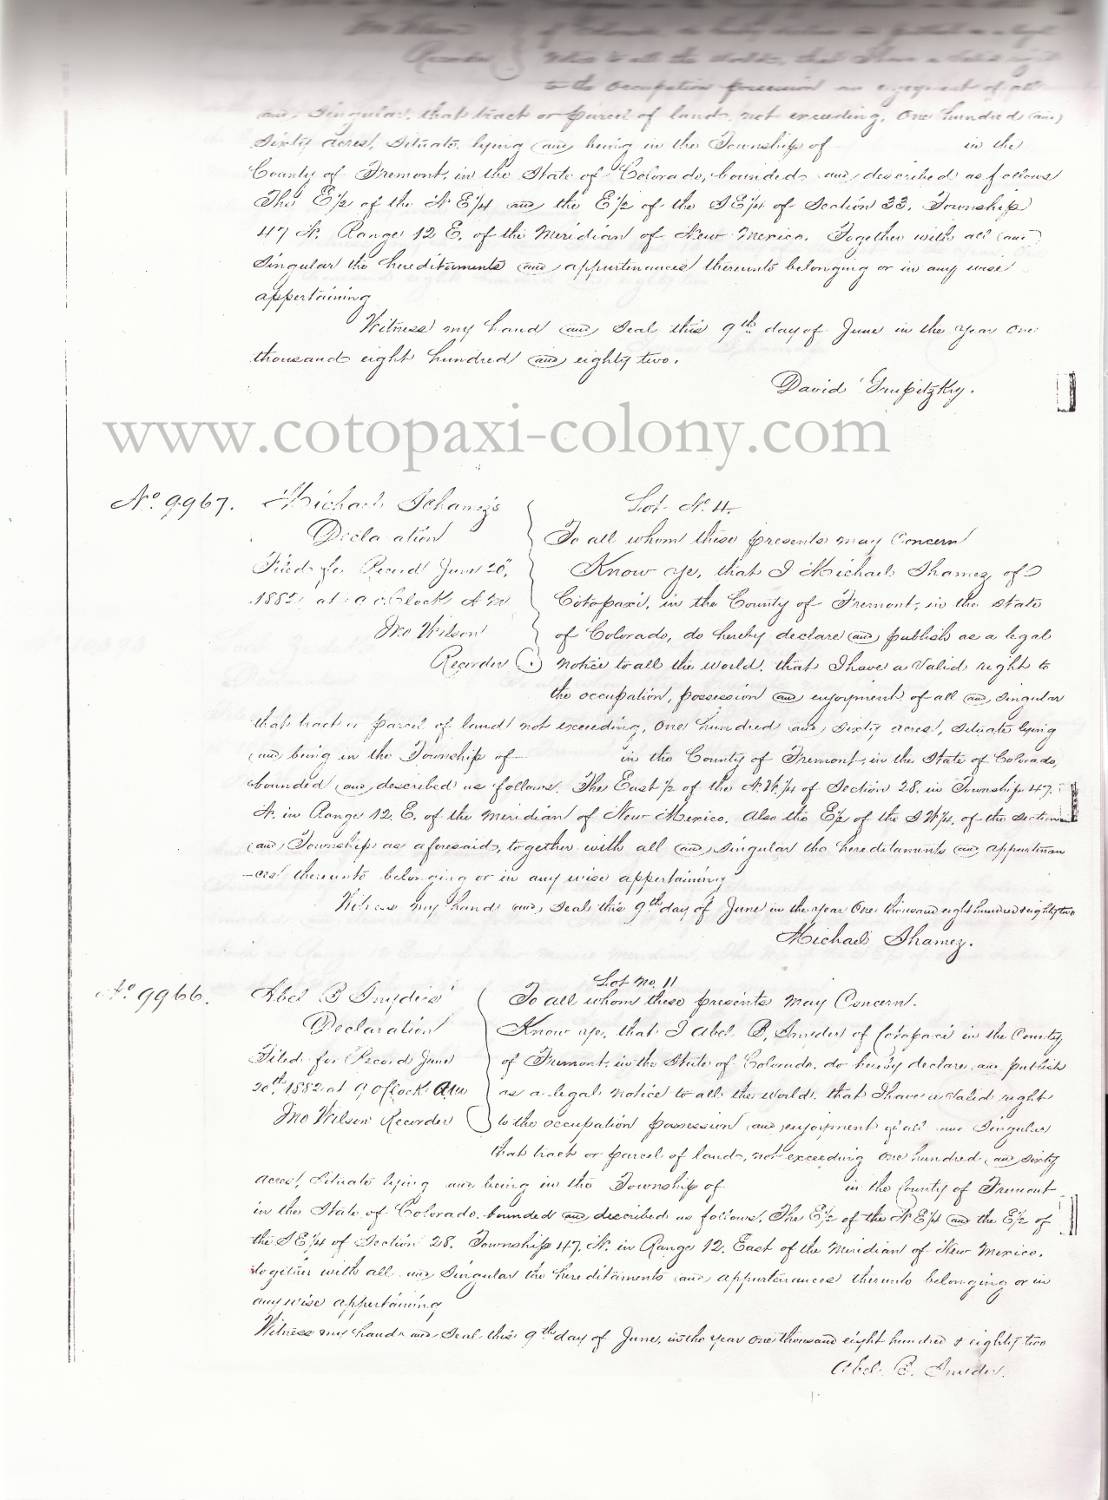 Jno Wilson of Colorado, do hereby declare and publish as a legal
Recorder notice to all the world, that I have a valid right
to the occupation possession and enjoyment of all
and Singular, that tract or parcel of land, not exceeding, One hundred and
Sixty acres, Situate, lying and being in the Township of in the
County of Fremont, in the State of Colorado, bounded and described as follows
The E 1/2 of the N E 1/4 and the E 1/2 of the S E 1/4 of Section 33. Township
47 N. Range 12 E. of the Meridian of New Mexico. Together with all and
Singular the hereditaments and appurtenances thereunto belonging or in any wise
appertaining
Witness my hand and Seal this 9th day of June in the year One
thousand eight hundred and eighty two.
David Grupitzky.
www.cotopaxi-colony.com
No. 9967.
Michael Schamez's
Declaration
Filed for Record June 20,
1882 at 9 oClock A M
Jno Wilson
Recorder
Lot No. 4.
To all whom these presents may Concern
Know ye, that I Michael Shamez of
Cotopaxi, in the County of Fremont, in the State
of Colorado, do hereby declare and publish as a legal
notice to all the world, that I have a Valid right to
the occupation, possession and enjoyment of all and Singular
that tract or parcel of land not exceeding, One hundred and Sixty acres, Situate lying
and being in the Township of in the County of Fremont, in the State of Colorado,
bounded and described as follows. The East 1/2 of the N. W. 1/4 of Section 28. in Township 47.
N. in Range 12. E. of the Meridian of New Mexico. Also the E 1/2 of the S W 1/4. of the Section
and Township as aforesaid, together with all and Singular the hereditaments and appurtenan
-ces thereunto belonging or in any wise appertaining
Witness my hand and Seal this 9th day of June in the year One thousand eight hundred & eighty two
Michael Shamez.
No. 9966.
Abel B
Declaration
Filed for Record June
20th 1882 at 9 oClock AM
Jno Wilson Recorder
Lot No. 11
To all whom these presents may Concern.
Know ye, that I Abel B. of Cotopaxi in the County
of Fremont, in the State of Colorado, do hereby declare and publish
as a legal notice to all the world, that I have a Valid right
to the occupation possession and enjoyment of all and Singular
that tract or parcel of land, not exceeding One hundred and Sixty
acres, Situate lying and being in the Township of in the County of Fremont
in the State of Colorado bounded and described as follows. The E 1/2 of the N E 1/4 and the E 1/2 of
the S E 1/4 of Section 28. Township 47. N. in Range 12. East of the Meridian of New Mexico.
together with all and Singular the hereditaments and appurtenances thereunto belonging or in
anywise appertaining
Witness my hand and Seal this 9th day of June, in the year One thousand eight hundred & eighty two
Abel B.